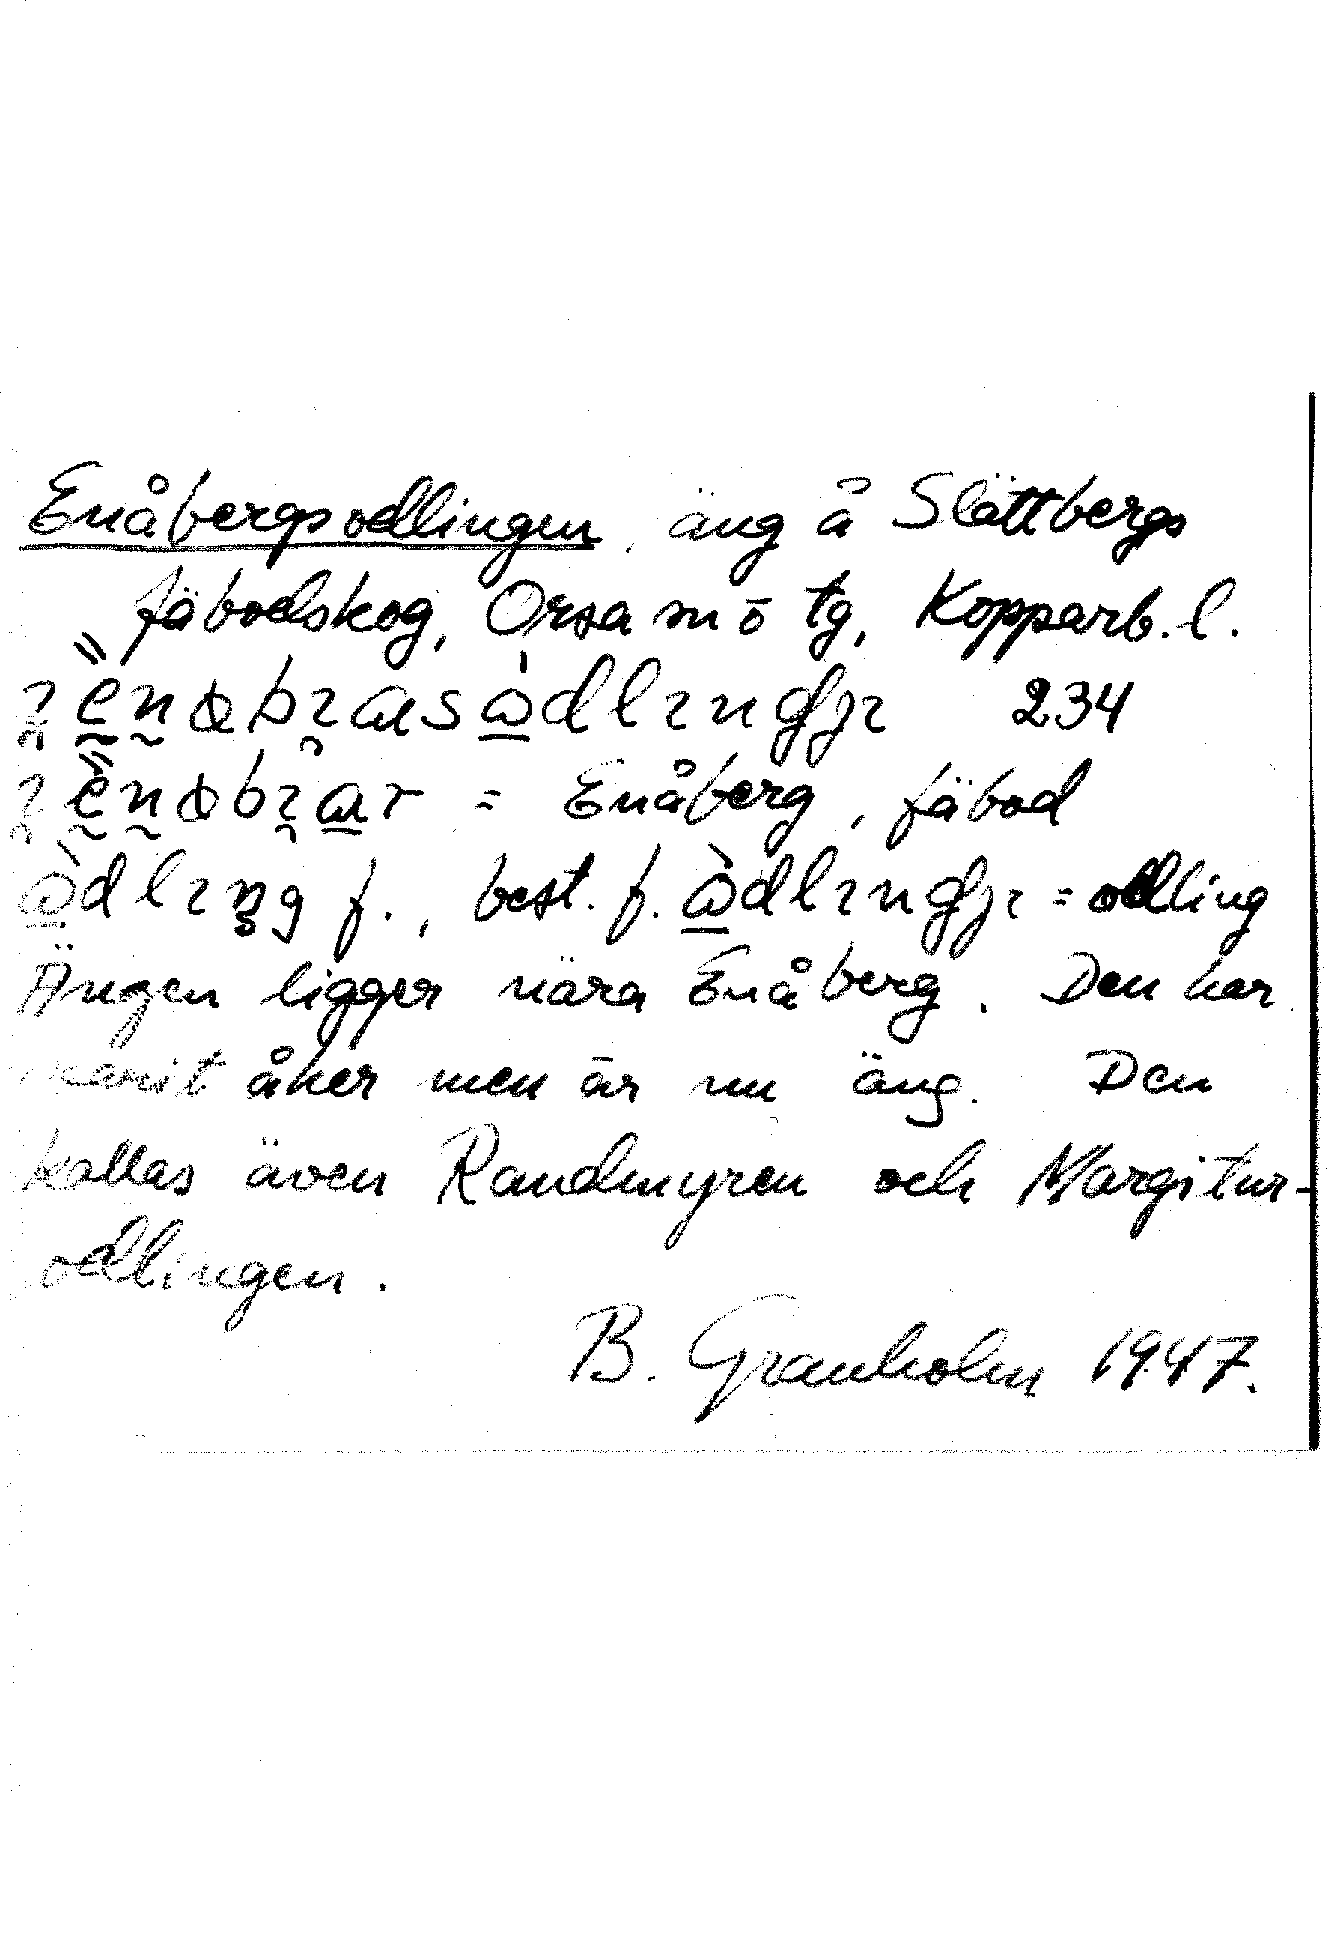 Enåbergsodlingen, äng å Slättbergs
fäbodskog, Orsa sn ō tg, Kopparb. l.
234
= Enåberg, fäbod
f., best. f. = odling
Ängen ligger nära Enåberg. Den har
varit åker men är nu äng. Den
kallas även Randmyren och Margitur-
odlingen.
B. Granholm 1947.